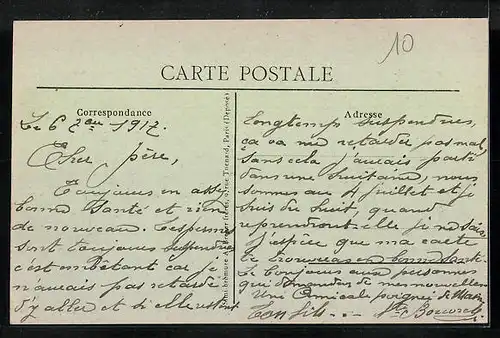 10
CARTE POSTALE
Correspondance
Le 6 1917.
Cher père,
Toujours en assez
bonne santé et rien
de nouveau. Les permis
sont toujours suspendues
c'est embêtant car je
n'aurais pas retardé
d'y aller et si elle restent
Adresse
longtemp suspendues,
ça va me retarder pas mal,
Sans cela j'aurais parti
dans une huitaine, nous
sommes au 4 juillet et je
suis du huit, quand
reprendront-elle je ne sais.
J'espère que ma carte
te trouvera en bonne santé
Le bonjour aux personnes
qui demandes de mes nouvelles
Une Amicale poignée de Main
Ton fils ...